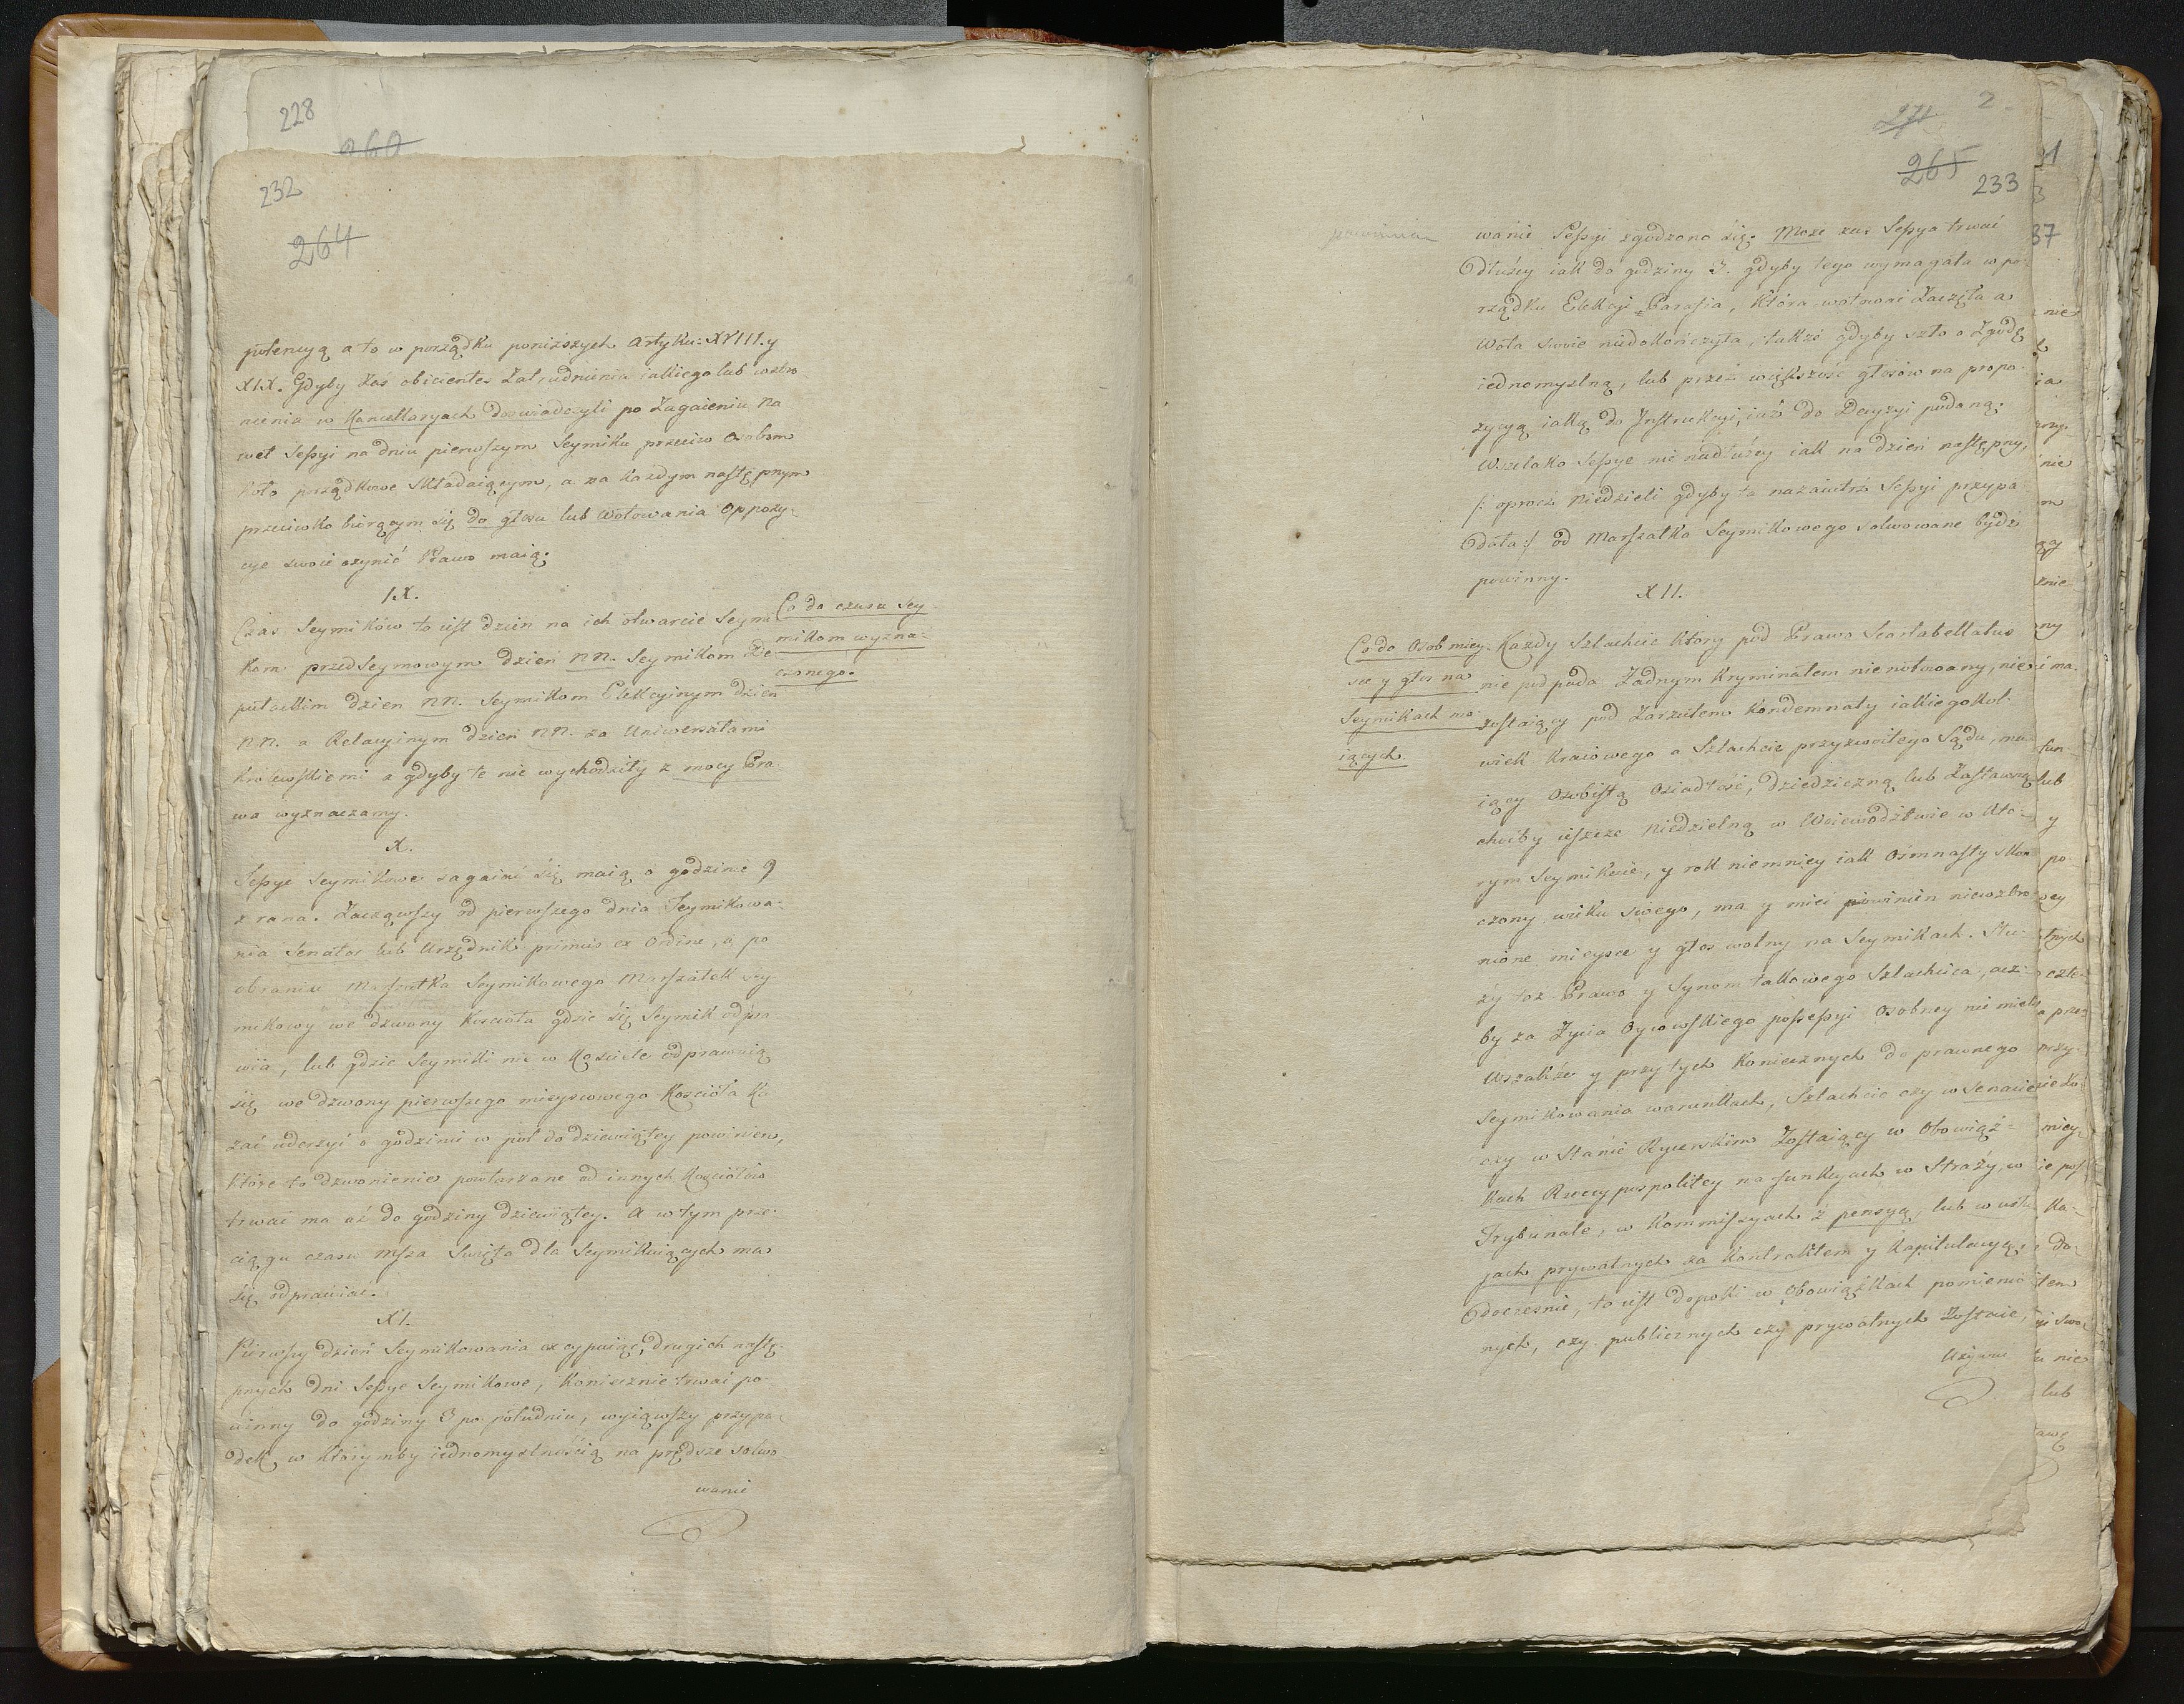 228
260
232
264
potencyą a to w porządku poniższych Artyku: XVIII. y
XIX. Gdyby zaś obicientes Zatrudnienia iakiego lub wzbro
nienia w Kancellaryach doświadczyli po Zagaieniu na
wet Seſsyi na dniu pierwſzym Seymiku przeciw Osobom
koło porządkowe składaiącym, a za każdym naſtępnym
przeciwko biorącym się do głosu lub Wotowania Oppozy-
cye swoie czynić Prawo maią.
IX.
Czas Seymików to ieſt dzień na ich otwarcie Seymi
kom przedSeymowym dzień NN. Seymikom De
putackim dzien NN. Seymikom Elekcyinym dzien
NN. a Relacyinym dzień NN. za Uniwersałami
Królewſkiemi a gdyby te nie wychodziły z mocy Pra-
wa wyznaczamy.
Co do czasu Sey
mikom wyzna-
czonego.
X.
Seſsye Seymikowe zagaiać się maią o godzinie 9
z rana. Zacząwſzy od pierwſzego dnia Seymikowa-
nia Senator lub Urzędnik primus ex Ordine, a po
obraniu Marſzałka Seymikowego Marſzałek Sey-
mikowy we dzwony Kościoła gdzie się Seymik odpra-
wia, lub gdzie Seymiki nie w Kościele odprawuią
się we dzwony pierwſzego mieyscowego Kościoła Ka
zać uderzyć o godzinie w pół do dziewiątey powinien,
które to dzwonienie powtarzane od innych Kościołów
trwać ma aż do godziny dziewiątey. A w tym prze-
ciągu czasu msza Swięta dla Seymikuiących ma
się odprawiać.
XI.
Pierwſzy dzień Seymikowania excypuiąc, drugich naſtę-
pnych dni Seſsye Seymikowe, koniecznie trwać po
winny do godziny 3 po południu, wyiąwſzy przypa-
dek w którymby iednomyslnością na prędsze solwo-
wanie
271
2
265
233
powinna
wanie Seſsyi zgodzono się. Może zas Seſsya trwać
Dłużey iak do godziny 3. gdyby tego wymagała w po-
rządku Elekcyi Parafia, która wotować Zaczęła a
Wota swoie niedokończyła, także gdyby szło o Zgodę
iednomyslną, lub przez większość głosów na propo-
zycyą iaką do Inſtrukcyi, iuż do Decyzyi podaną.
Wszelako Seſsye nie nadłużey iak na dzień naſtępny,
/: oprocz Niedzieli gdyby ta nazaiutrz Seſsyi przypa
Dała :/ od Marſzałka Seymikowego solwowane bydź
powinny.
XII.
Co do Osob miey-
sce y głos na
Seymikach ma-
iących
Każdy Szlachcic ktory pod Prawo Scartabellatus
nie podpada Żadnym Kryminałem nienotowany, nie
zoſtaiący pod Zarzutem Kondemnaty iakiegokol-
wiek Kraiowego a Szlachcie przyzwoitego Sądu, ma-
iący Osobiſtą Osiadłość, dziedziczną lub Zaſtawną
choćby ieſzcze Niedzielną w Woiewództwie w Któ-
rym Seymikuie, y rok niemniey iak Osmnaſty skoń
czony wieku swego, ma y mieć powinien niewzbro
nione mieysce y głos wolny na Seymikach. Słu-
ży toż Prawo y Synom takowego Szlachcica, acz-
by za Życia Oycowſkiego poſseſsyi Osobney nie mieli
Wszakże y przy tych Koniecznych do prawnego
Seymikowania warunkach, Szlachcic czy w Senacie
czy w Stanie Rycerskim Zoſtaiący w Obowiąz-
kach Rzeczypospolitey na funkcyach w Straży, w
Trybunale, w Kommiſsyach z pensyą, lub w usłu
gach prywatnych za kontraktem y Kapitulacyą,
Doczesnie, to ieſt dopoki w Obowiązkach pomienio
nych, czy publicznych czy prywatnych Zoſtaie,
Używa
37
nie
lub
y
po
lub